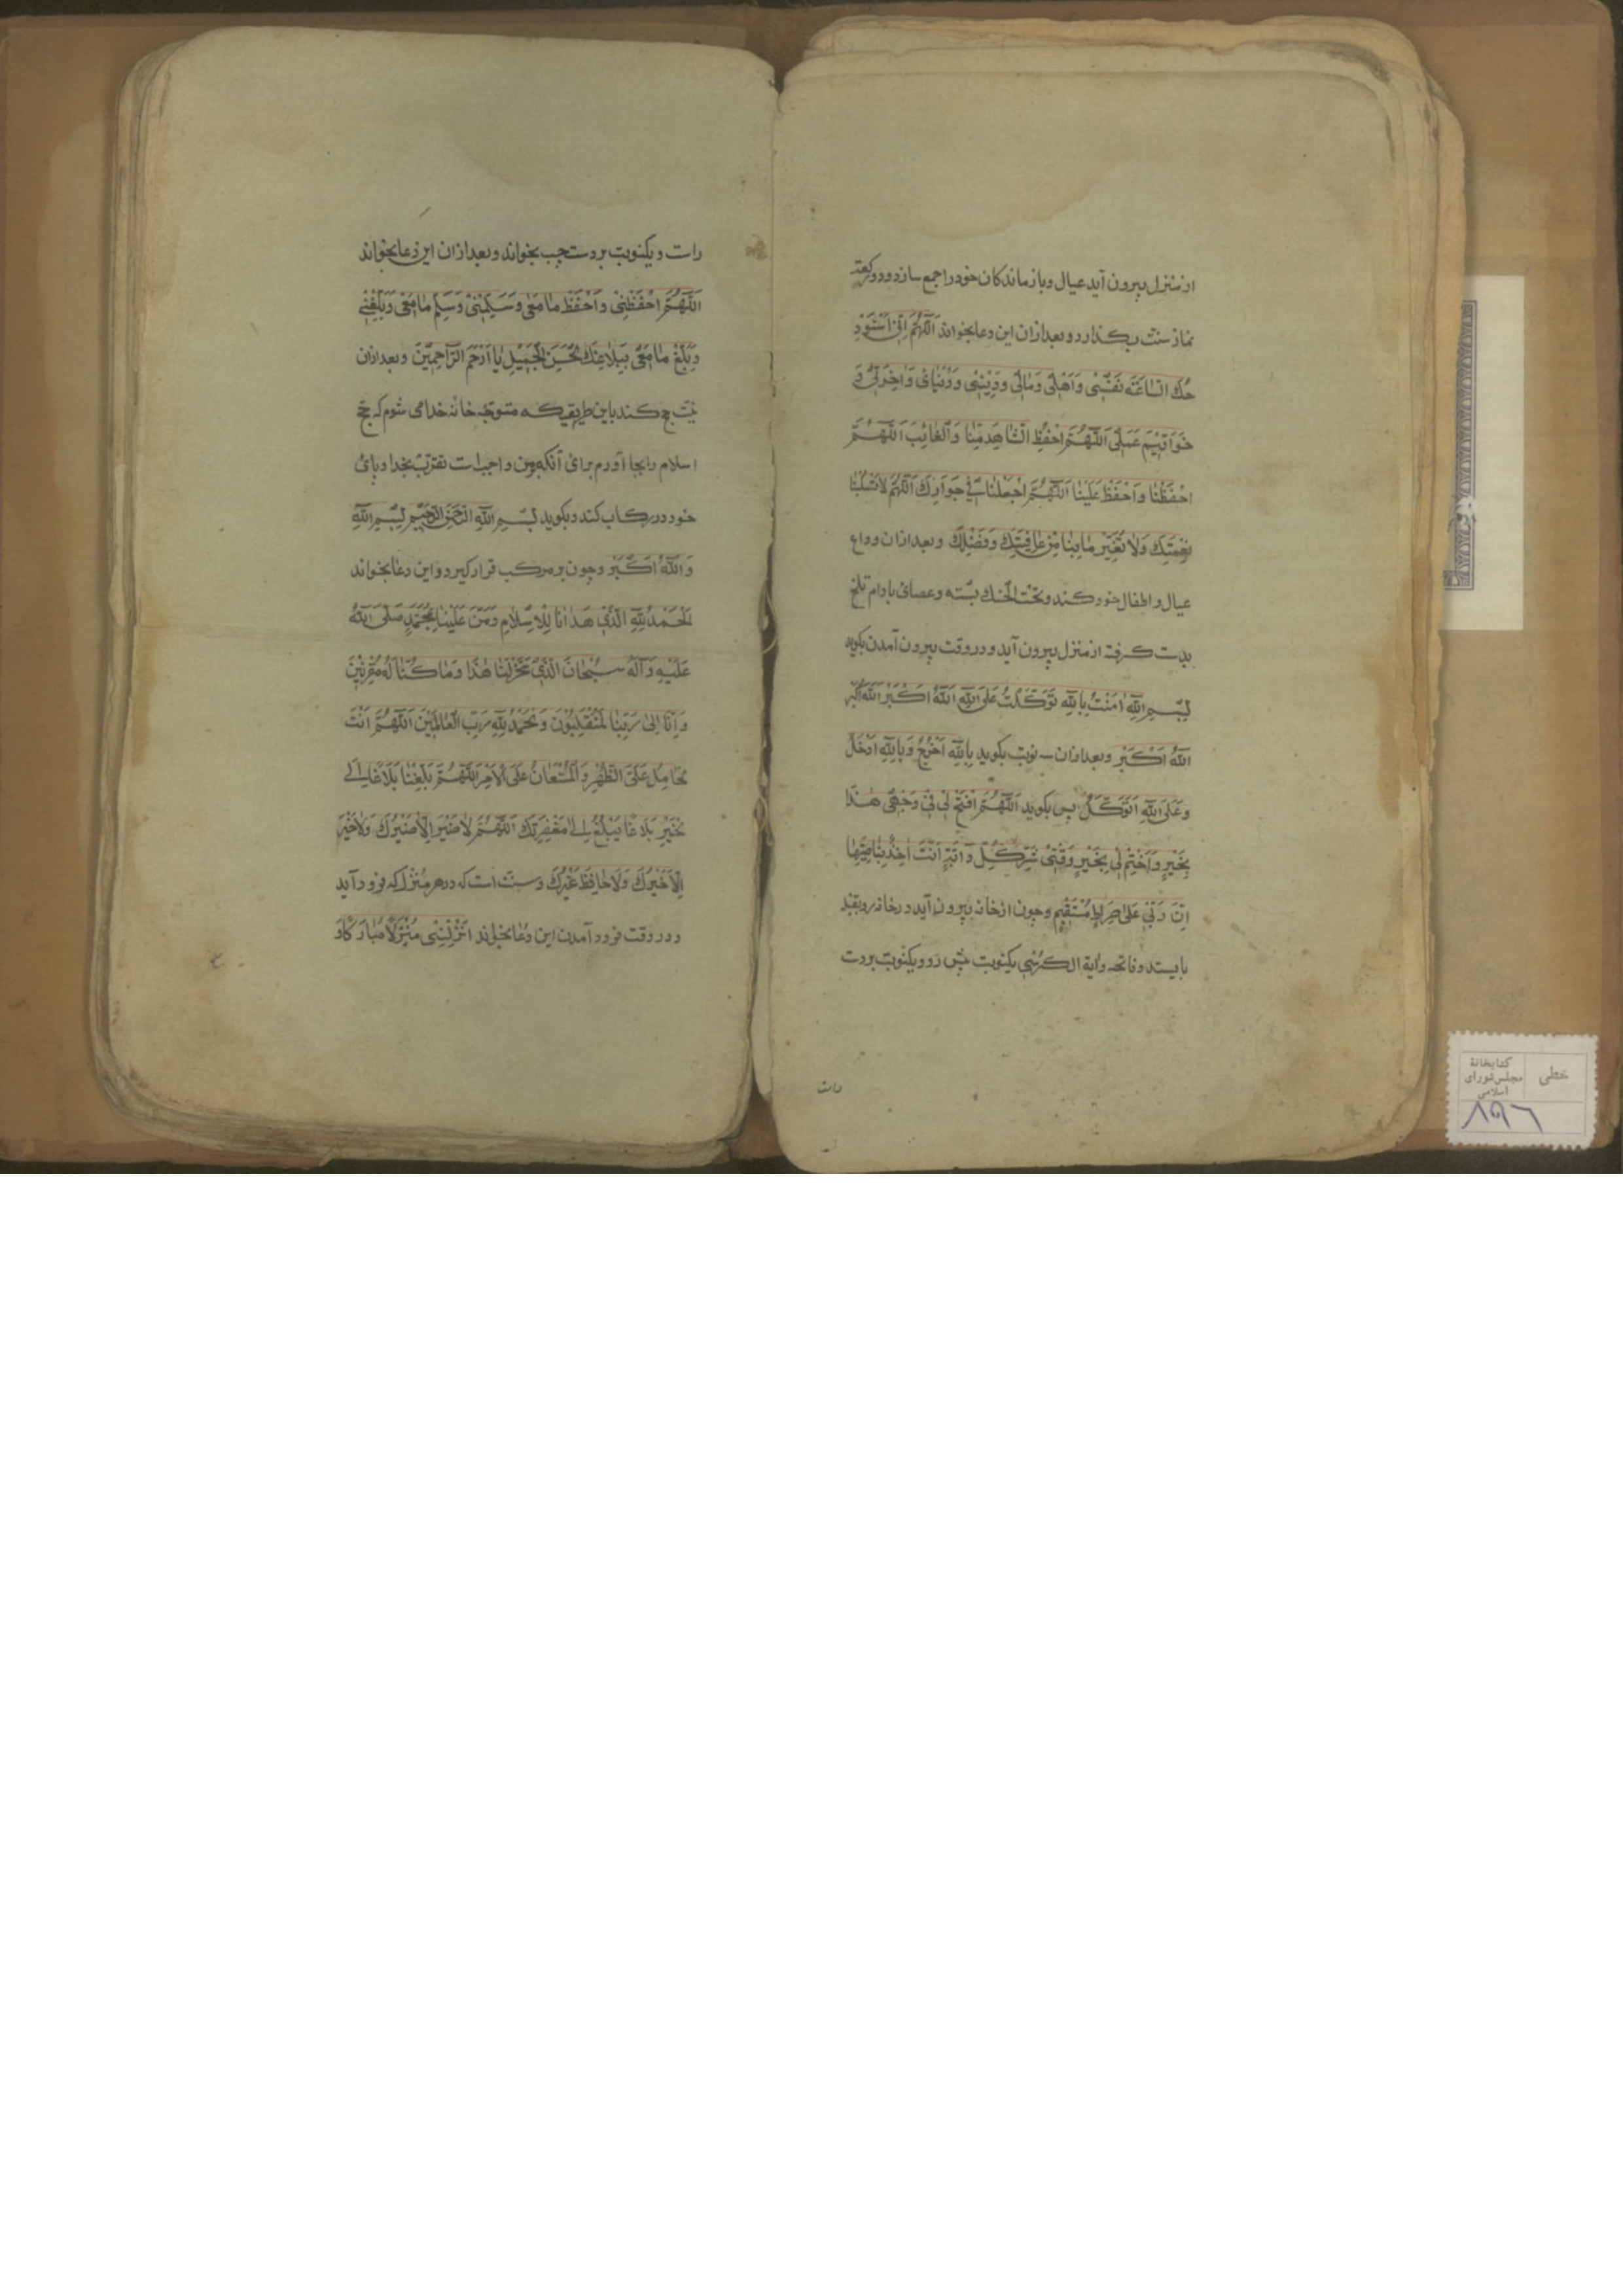 از منزل بیرون آید عیال و بازماندکان خود را جمع سازد و دو رکعت
نماز سنت بکذارد و بعد از ان این دعا بخواند اَللّهُمَّ اِنّی اَسْتَوْدِ
عُکَ السّاعَةَ نَفْسْی وَاَهْلی وَمٰالی وَدِیْنی وَدُنْیایَ وَاٰخِرَتی وَ
خَوَاتِیْمَ عَمَلی اَللّهُمَّ احْفَظِ الشّاهِدَ مِنّا وَالْغائِبَ اَللّهُمَّ
احْفَظْنا وَاحْفَظْ عَلَیْنا اَللّهُمَّ اجْعَلْنا فی جَوارِکَ اَللّهُمَّ لاتَسْلُبْنا
نِعْمَتِکَ وَلا تُغَیِّرْ مابِنا مِنْ عٰافِیَتِکَ وَفَضْلِکَ و بعد از ان وداع
عیال و اطفال خود کند و تحت الحنک بسته و عصای بادام تلخ
بدست کرفته از منزل بیرون آید و در وقت بیرون آمدن بکوید
بِسْمِ اللّهِ اٰمَنْتُ بِاللّهِ تَوَکَّلْتُ عَلَی اللّهِ اَللّهُ اَکْبَرُ اَللّهُ اَکْبَرُ
اَللّهُ اَکْبَرُ و بعد از ان نوبت بکوید بِاللّهِ اَخْرُجُ وَبِاللّهِ اَدْخُلُ
وَعَلَی اللّهِ اَتَوَکَّلُ پس بکوید اَللّهُمَّ افْتَحْ لی فی وَجْهی هٰذا
بِخَیْرٍ وَاخْتِمْ لی بِخَیْرٍ وَقِنی شَرَّ کُلِّ دٰابَّةٍ اَنْتَ اٰخِذٌ بِناصِیَتِها
اِنَّ رَبّی عَلٰی صِرٰاطٍ مُسْتَقیمٍ و چون از خانه بیرون آید در خانه رو بقبله
بایستد و فاتحه و آیة الکرسی یکنوبت پیش رو و یکنوبت بردست
راست
راست و یکنوبت بردست چپ بخواند و بعد از ان این دعا بخواند
اَللّهُمَّ احْفَظْنی وَاحْفَظْ مامَعی وَسَلِّمْنی وَسَلِّمْ مامَعی وَبَلِّغْنی
وَبَلِّغْ مامَعی بِبَلاغِکَ الْحَسَنِ الْجَمیلِ یا اَرْحَمَ الرّاحِمینَ و بعد از ان
نیت حج کند باین طریق که متوجه خانه خدا می شوم که حج
اسلام را بجا آورم برای آنکه برمن واجبست تقرب بخدا و پای
خود در رکاب کند و بکوید بِسْمِ اللّهِ الرَّحْمٰنِ الرَّحیمِ بِسْمِ اللّهِ
وَاللّهُ اَکْبَرُ و چون بر مرکب قرار کیرد و این دعا بخواند
اَلْحَمْدُ لِلّهِ الَّذی هَدٰانا لِلْاِسْلامِ وَمَنَّ عَلَیْنا بِمُحَمَّدٍ صَلَّی اللّهُ
عَلَیْهِ وَآلِهِ سُبْحانَ الَّذی سَخَّرَ لَنا هٰذا وَماکُنّا لَهُ مُقْرِنینَ
وَاِنّا اِلٰی رَبِّنا لَمُنْقَلِبُونَ وَالْحَمْدُ لِلّهِ رَبِّ الْعالَمینَ اَللّهُمَّ اَنْتَ
الْحامِلُ عَلَی الظَّهْرِ وَالْمُسْتَعانُ عَلَی الْاَمْرِ اَللّهُمَّ بَلِّغْنا بَلاغًا اِلٰی
خَیْرٍ بَلاغًا یَبْلُغُ اِلٰی مَغْفِرَتِکَ اَللّهُمَّ لاضَیْرَ اِلّا ضَیْرُکَ وَلاخَیْرَ
اِلّا خَیْرُکَ وَلاحافِظَ غَیْرُکَ و سنت است که در هر منزل که فرود آید
و در وقت فرود آمدن این دعا بخواند اَنْزِلْنی مُنْزَلًا مُبارَکًا وَ
خطی
کتابخانهٔ
مجلس شورای
اسلامی
۸۹۶